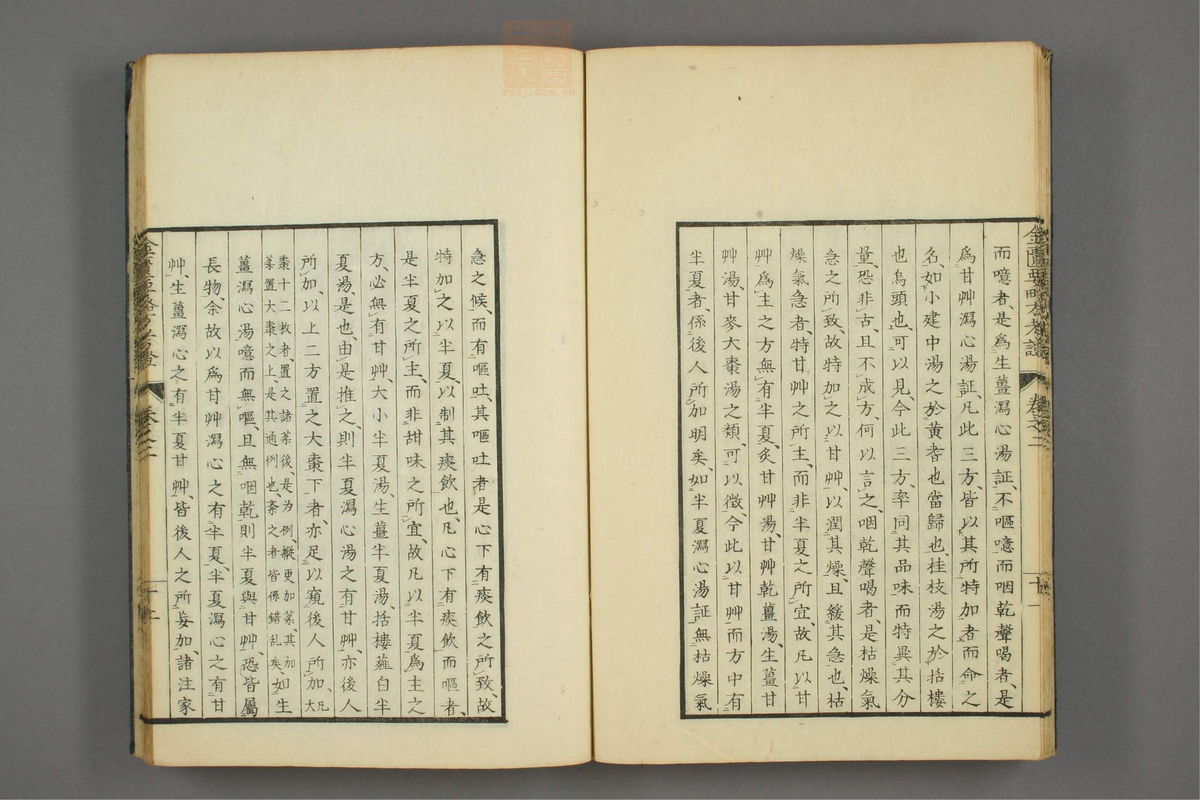 而噫者、是爲生薑瀉心湯証、不嘔噫而咽乾聲喝者、是
爲甘艸瀉心湯証、凡此三方、皆以其所特加者、而命之
名、如小建中湯之於黄耆也當歸也、桂枝湯之於括樓
也烏頭也、可以見、今此三方、率同其品味而特異其分
量、恐非古、且不成方、何以言之、咽乾聲喝者、是枯燥氣
急之所致、故特加之以甘艸、以潤其燥、且緩其急也、枯
燥氣急者、特甘艸之所主、而非半夏之所宜、故凡以甘
艸爲主之方、無有半夏、炙甘艸湯、甘艸乾薑湯、生薑甘
艸湯、甘麥大棗湯之類、可以徴、今此以甘艸而方中有
半夏者、係後人所加明矣、如半夏瀉心湯証、無枯燥氣
急之候、而有嘔吐、其嘔吐者、是心下有痰飲之所致、故
特加之以半夏、以制其痰飲也、凡心下有痰飲而嘔者、
是半夏之所主、而非甜味之所宜、故凡以半夏爲主之
方、必無有甘艸、大小半夏湯、生薑半夏湯、括樓薤白半
夏湯是也、由是推之、則半夏瀉心湯之有甘艸、亦後人
所加、以上二方置之大棗下者、亦足以窺後人所加、凡大
棗十二枚者、置之諸菜後、是为例、縱更加菜、其加
菜置大棗之上、是其通例也、紊之者皆係錯乱矣、如生
薑瀉心湯噫而無嘔、且無咽乾、則半夏與甘艸、恐皆屬
長物、余故以爲甘艸瀉心之有半夏、半夏瀉心之有甘
艸、生薑瀉心之有半夏甘艸、皆後人之所妄加、諸注家
卷之二